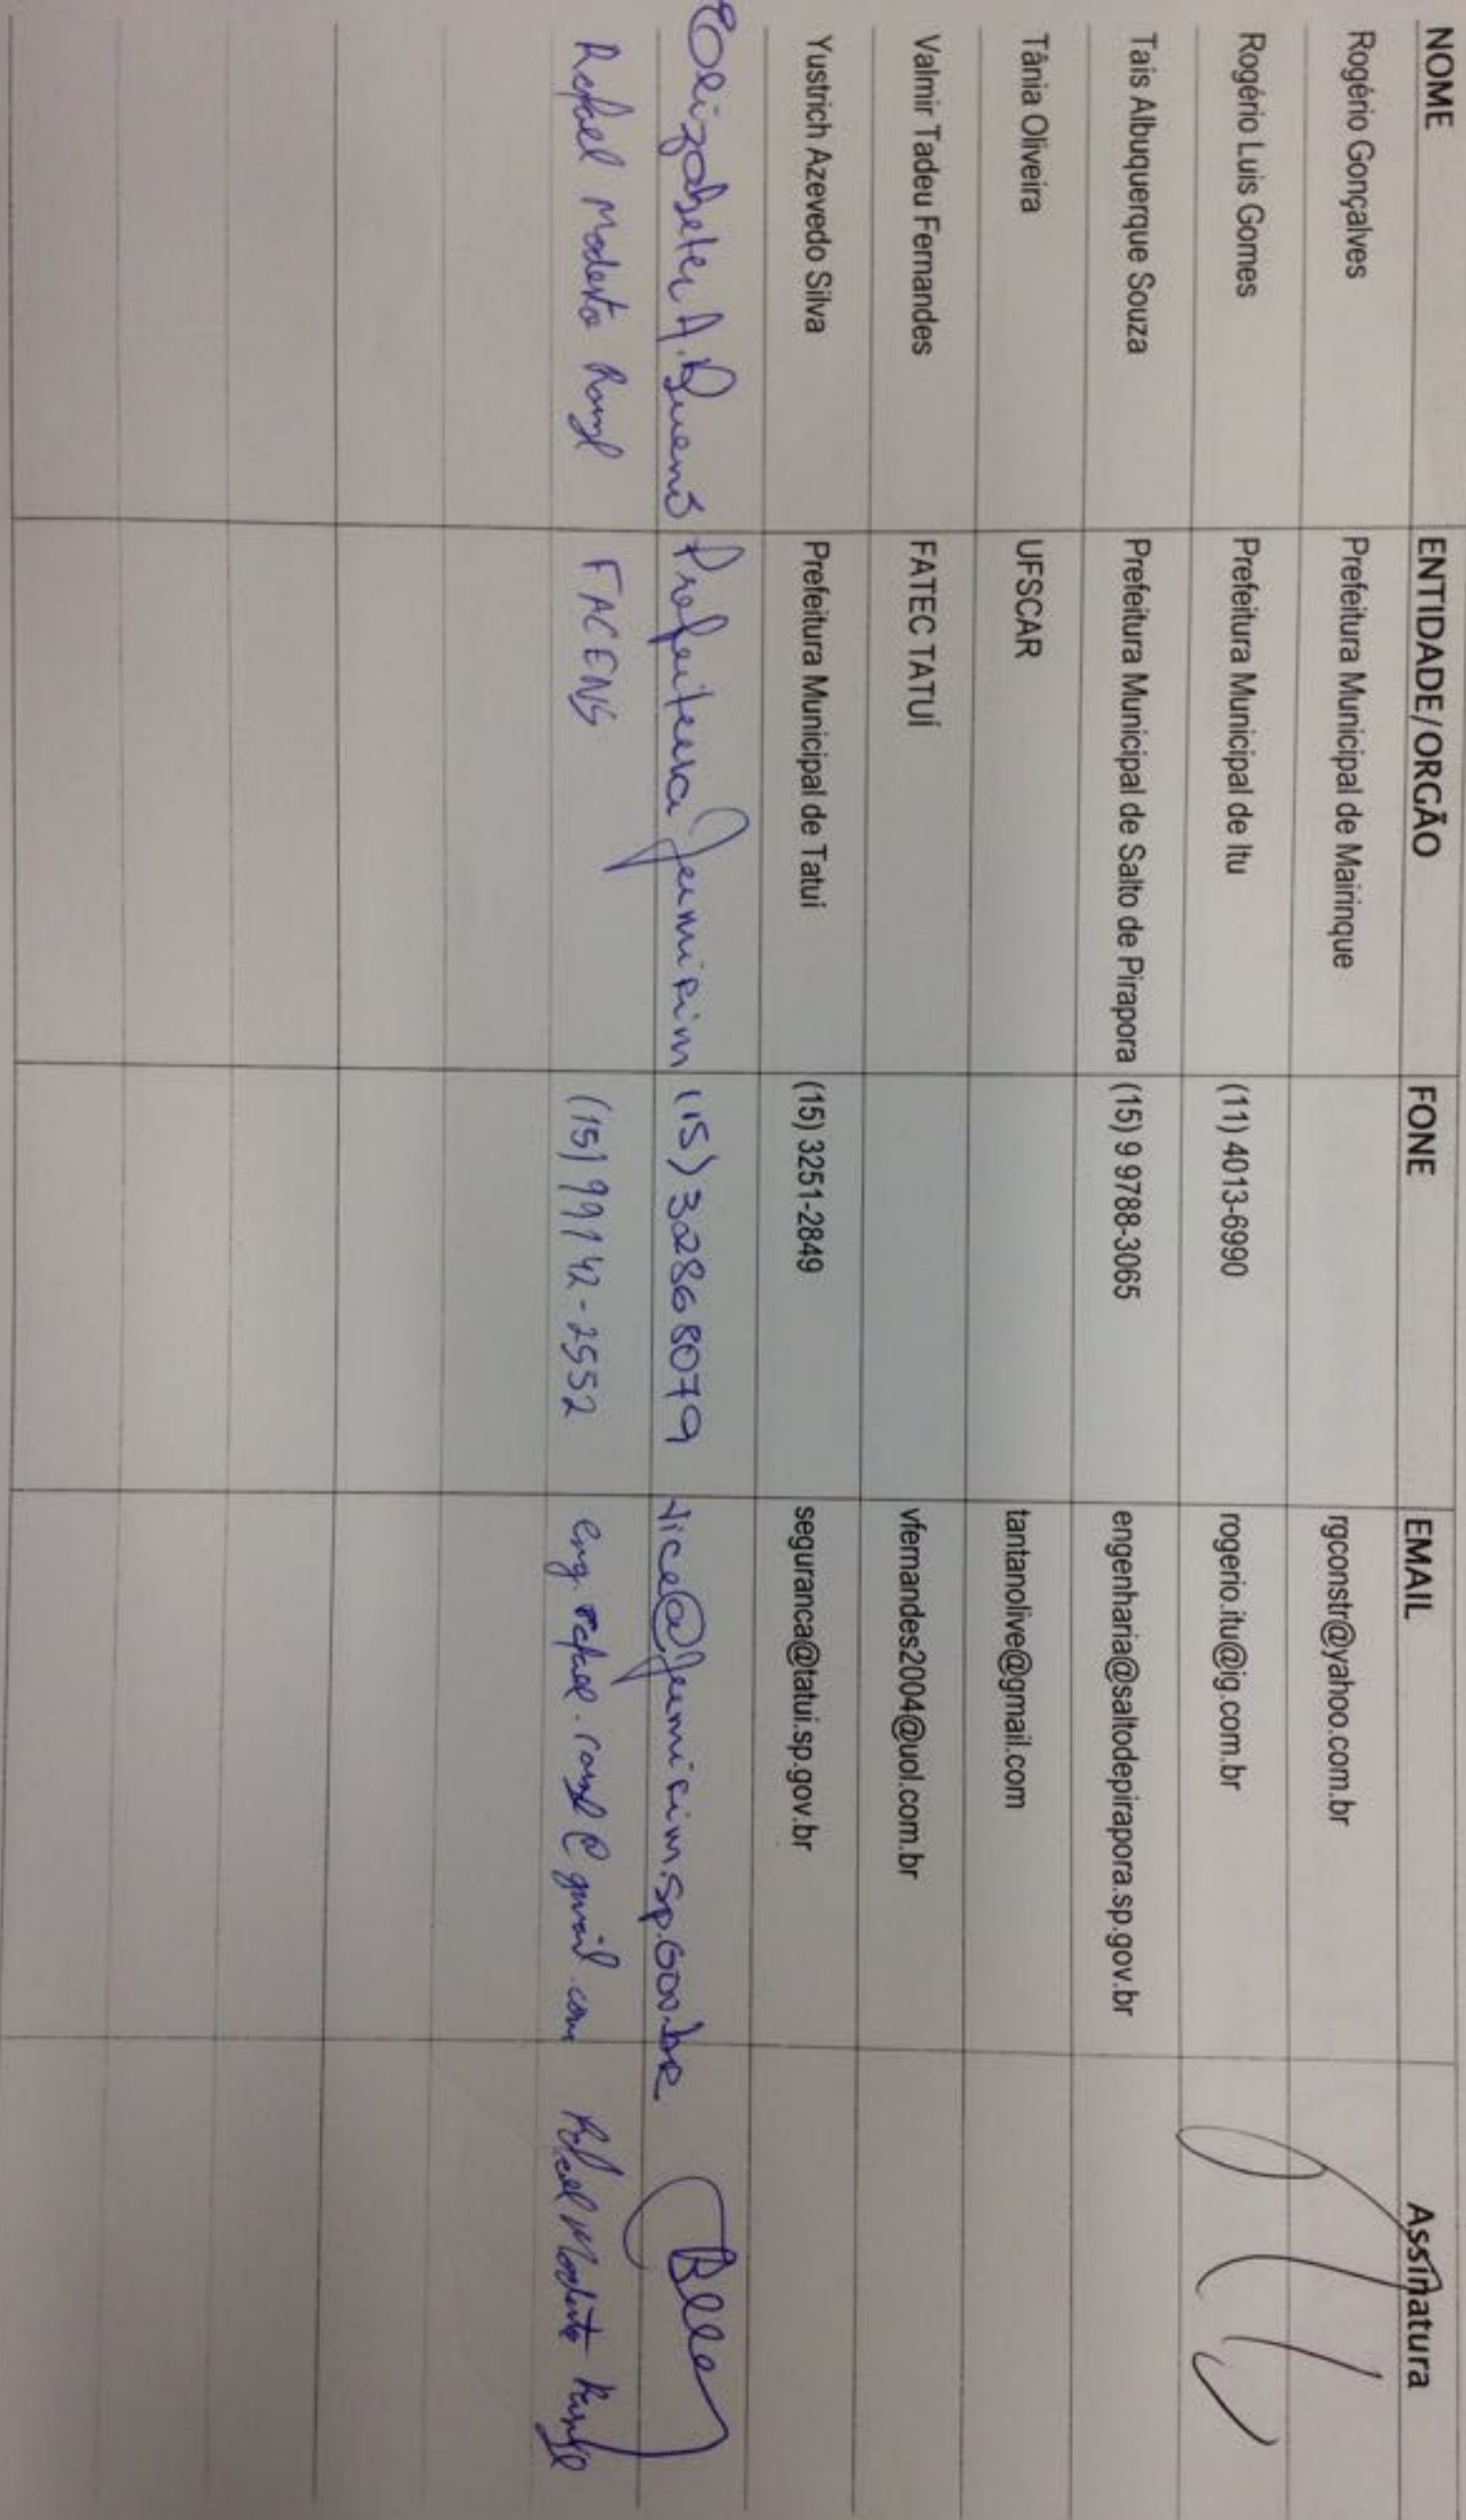 NOME ENTIDADE/ORGÃO FONE EMAIL Assinatura
Rogério Gonçalves Prefeitura Municipal de Mairinque rgconstr@yahoo.com.br
Rogério Luis Gomes Prefeitura Municipal de Itu (11) 4013-6990 rogerio.itu@ig.com.br
Tais Albuquerque Souza Prefeitura Municipal de Salto de Pirapora (15) 9 9788-3065 engenharia@saltodepirapora.sp.gov.br
Tânia Oliveira UFSCAR tantanolive@gmail.com
Valmir Tadeu Fernandes FATEC TATUÍ vfernandes2004@uol.com.br
Yustrich Azevedo Silva Prefeitura Municipal de Tatui (15) 3251-2849 seguranca@tatui.sp.gov.br
A. Prefeitura Jumirim (15) 32868079 vice@jumirim.sp.gov.br
Rafael Modesto FACENS (15) 99142-2552 Rafael Modesto